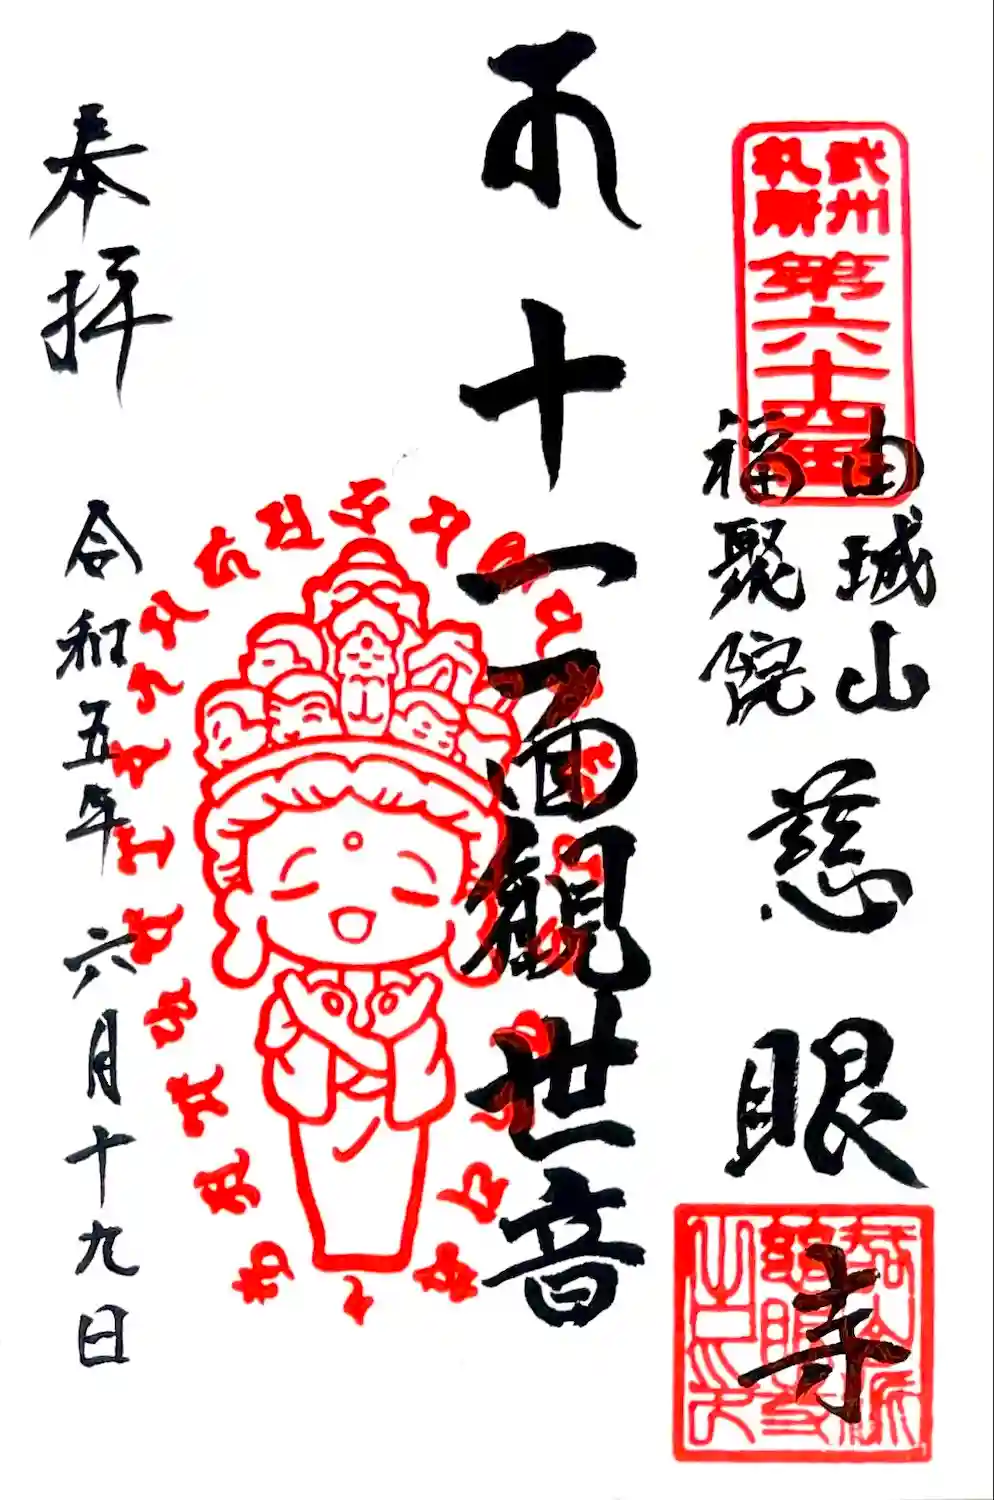 武州
札所
第六十四番
由城山
福聚院
慈眼寺
十一面観世音
奉拝
令和五年六月十九日